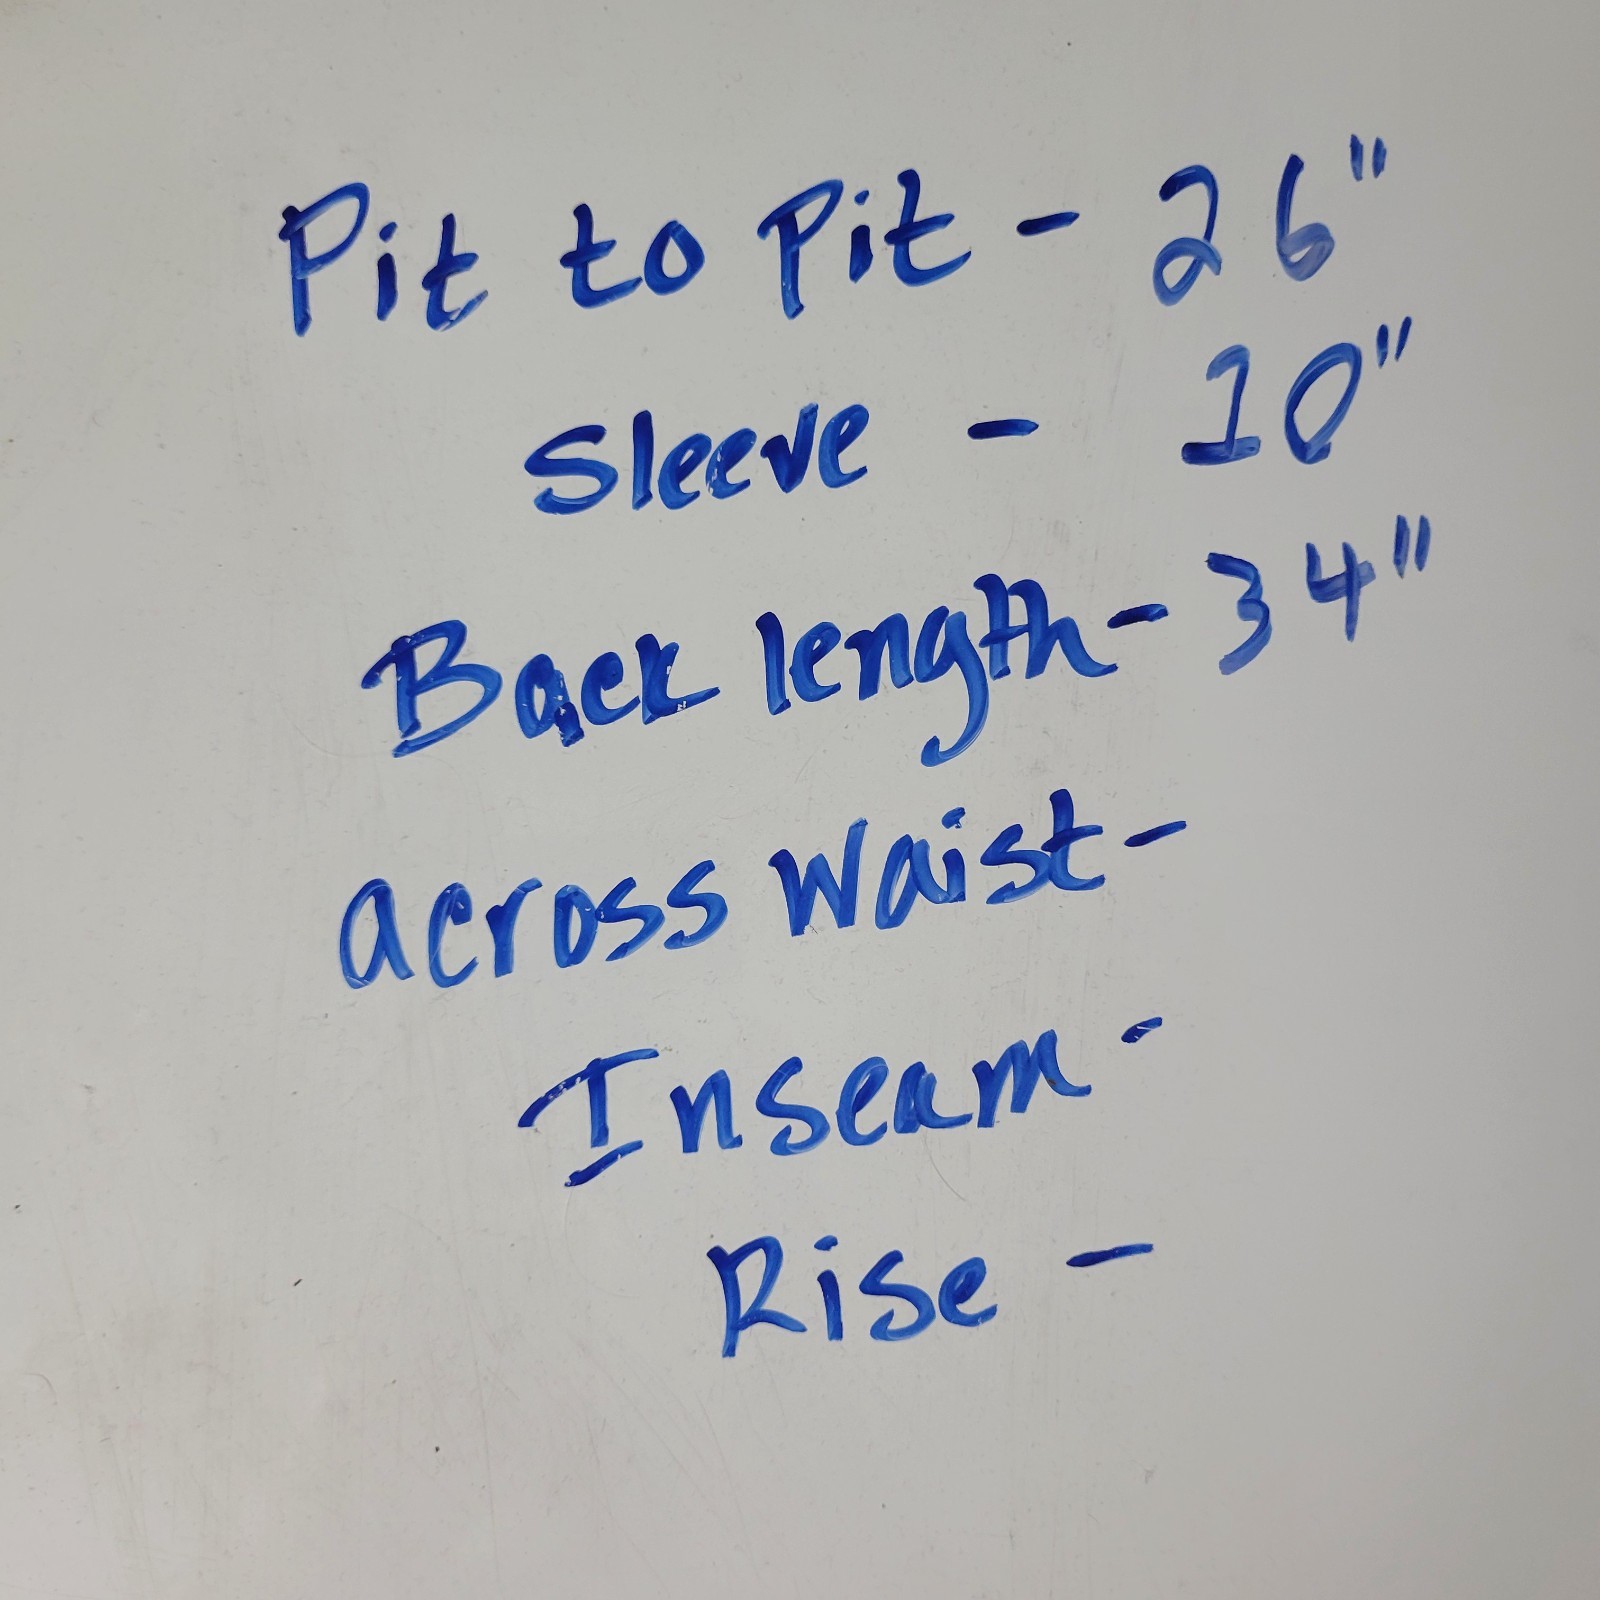 Pit to Pit - 26"
Sleeve - 10"
Back length - 34"
across waist -
Inseam -
Rise -